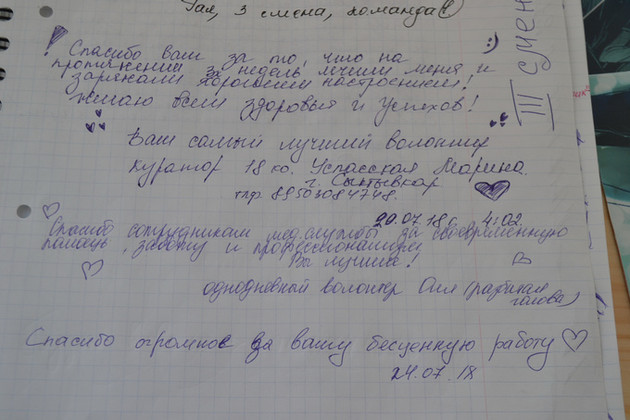 Гая, 3 смена, команда
! Спасибо вам за то, что на
протяжении 3х недель лечили меня и
заряжали хорошим настроением!
Желаю всем здоровья и успехов!
Ваш самый лучший волонтер
Куратор 18 ко. Успасская Марина.
г. Сыктывкар
тлф 89503084748.
20.07.18г. 4:02
Спасибо сотрудникам мед.службы за своевременную
помощь, заботу и профессионализм
Вы лучшие!
однодневной волонтер Оля (разбитая
голова)
Спасибо огромное за вашу бесценную работу
24.07.18
III смен